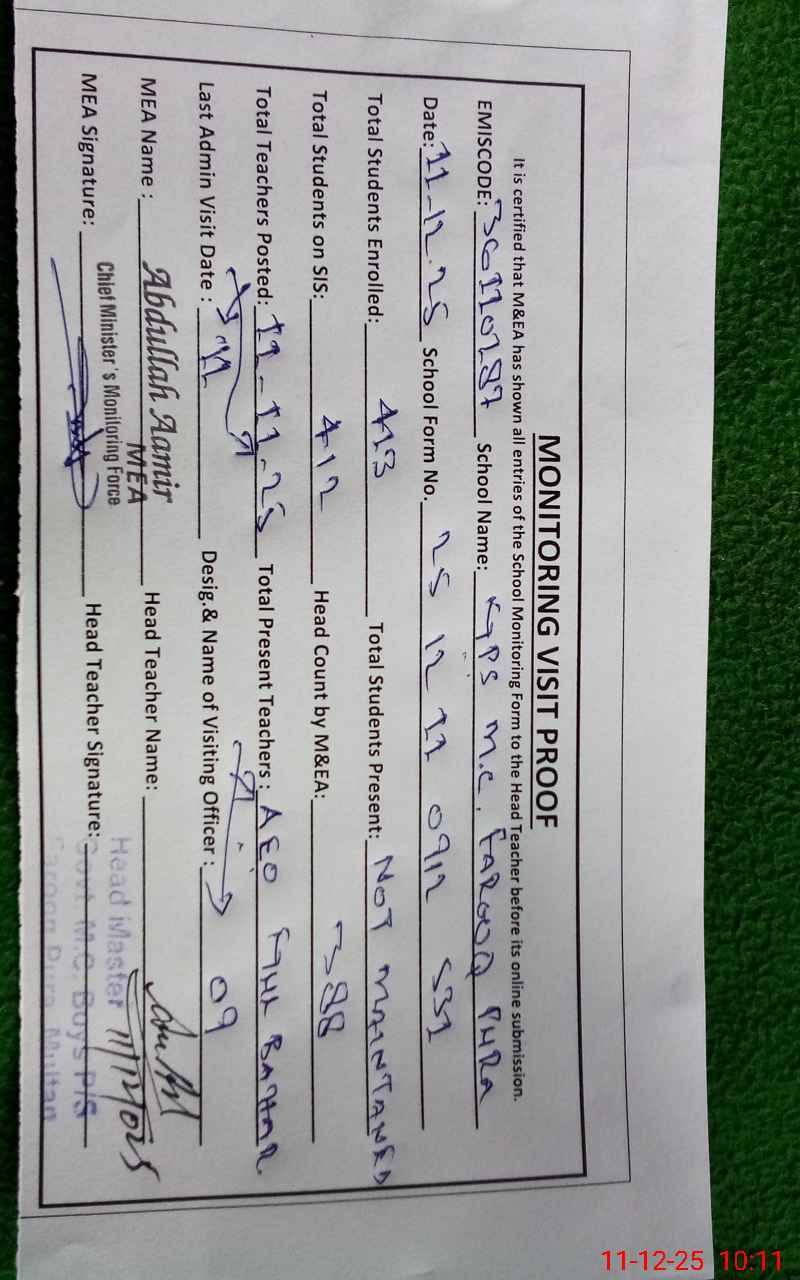 MONITORING VISIT PROOF
It is certified that M&EA has shown all entries of the School Monitoring Form to the Head Teacher before its online submission.
EMISCODE: 36110287 School Name: GPS M.C. FAROOQ PURA
Date: 11-12-25 School Form No. 25 12 11 0912 531
Total Students Enrolled: 413 Total Students Present: NOT MAINTANED
Total Students on SIS: 412 Head Count by M&EA: 388
Total Teachers Posted: 11-11-25 Total Present Teachers : AEO BAHAR
Last Admin Visit Date : 11 Desig.& Name of Visiting Officer : 09
MEA Name : Abdullah Aamir Head Teacher Name:
MEA
Chief Minister's Monitoring Force
MEA Signature: Head Teacher Signature:
Head Master 11/12/025
Govt. M.C. Boys P/S
Farooq Pura Multan
11-12-25 10:11